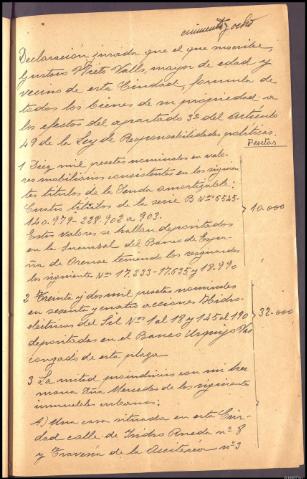 cincuenta y ocho
Declaración jurada que el que suscribe,
Gustavo Prieto Valls, mayor de edad y
vecino de esta Ciudad, formula de
todos los bienes de su propiedad a
los efectos del apartado 3º del Artículo
49 de la Ley de Responsabilidades políticas.
Pesetas
1 Diez mil pesetas nominales en valo-
res mobiliarios consistentes en los siguien-
tes títulos de la Deuda amortizable:
Cuatro títulos de la serie B Nº
140.979-228.902 a 903.
Estos valores se hallan depositados
en la Sucursal del Banco de Espa-
ña de Orense teniendo los resguardos
los siguientes Nos 17.233-17.635 y 18.990
10.000
2 Treinta y dos mil pesetas nominales
en sesenta y cuatro acciones Hidro-
eléctricas del Sil Nos 1 al 18 y 145 al 190
depositadas en el Banco Urquijo Vas-
congado de esta plaza
32.000
3 La mitad proindiviso con mi her-
mana Ana Mercedes de los siguientes
inmuebles urbanos:
A) Una casa situada en esta Ciu-
dad calle de Isidro Parada nº 8
y Travesía de la nº 3